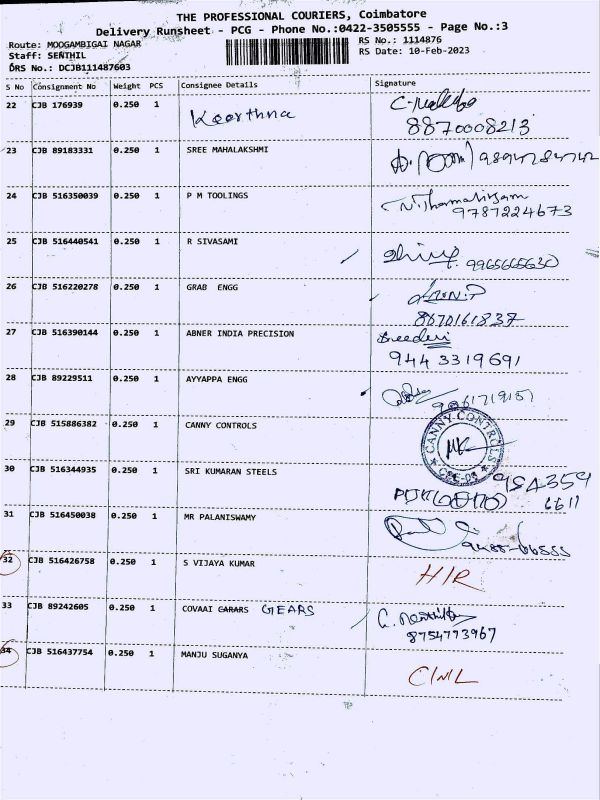 THE PROFESSIONAL COURIERS, Coimbatore
Delivery Runsheet - PCG - Phone No.:0422-3505555 - Page No.:3
Route: MOOGAMBIGAI NAGAR
RS No.: 1114876
Staff: SENTHIL
RS Date: 10-Feb-2023
DRS No.: DCJB111487603
S No Consignment No Weight PCS Consignee Details Signature
22 CJB 176939 0.250 1 Keerthna
8870008213
23 CJB 89183331 0.250 1 SREE MAHALAKSHMI
24 CJB 516350039 0.250 1 P M TOOLINGS
9787224673
25 CJB 516440541 0.250 1 R SIVASAMI
9965665630
26 CJB 516220278 0.250 1 GRAB ENGG
8670161837
27 CJB 516390144 0.250 1 ABNER INDIA PRECISION
9443319691
28 CJB 89229511 0.250 1 AYYAPPA ENGG
29 CJB 515886382 0.250 1 CANNY CONTROLS
CANNY CONTROLS
30 CJB 516344935 0.250 1 SRI KUMARAN STEELS
954359
6611
31 CJB 516450038 0.250 1 MR PALANISWAMY
32 CJB 516426758 0.250 1 S VIJAYA KUMAR H/R
33 CJB 89242605 0.250 1 COVAAI CARARS GEARS
8754773967
34 CJB 516437754 0.250 1 MANJU SUGANYA